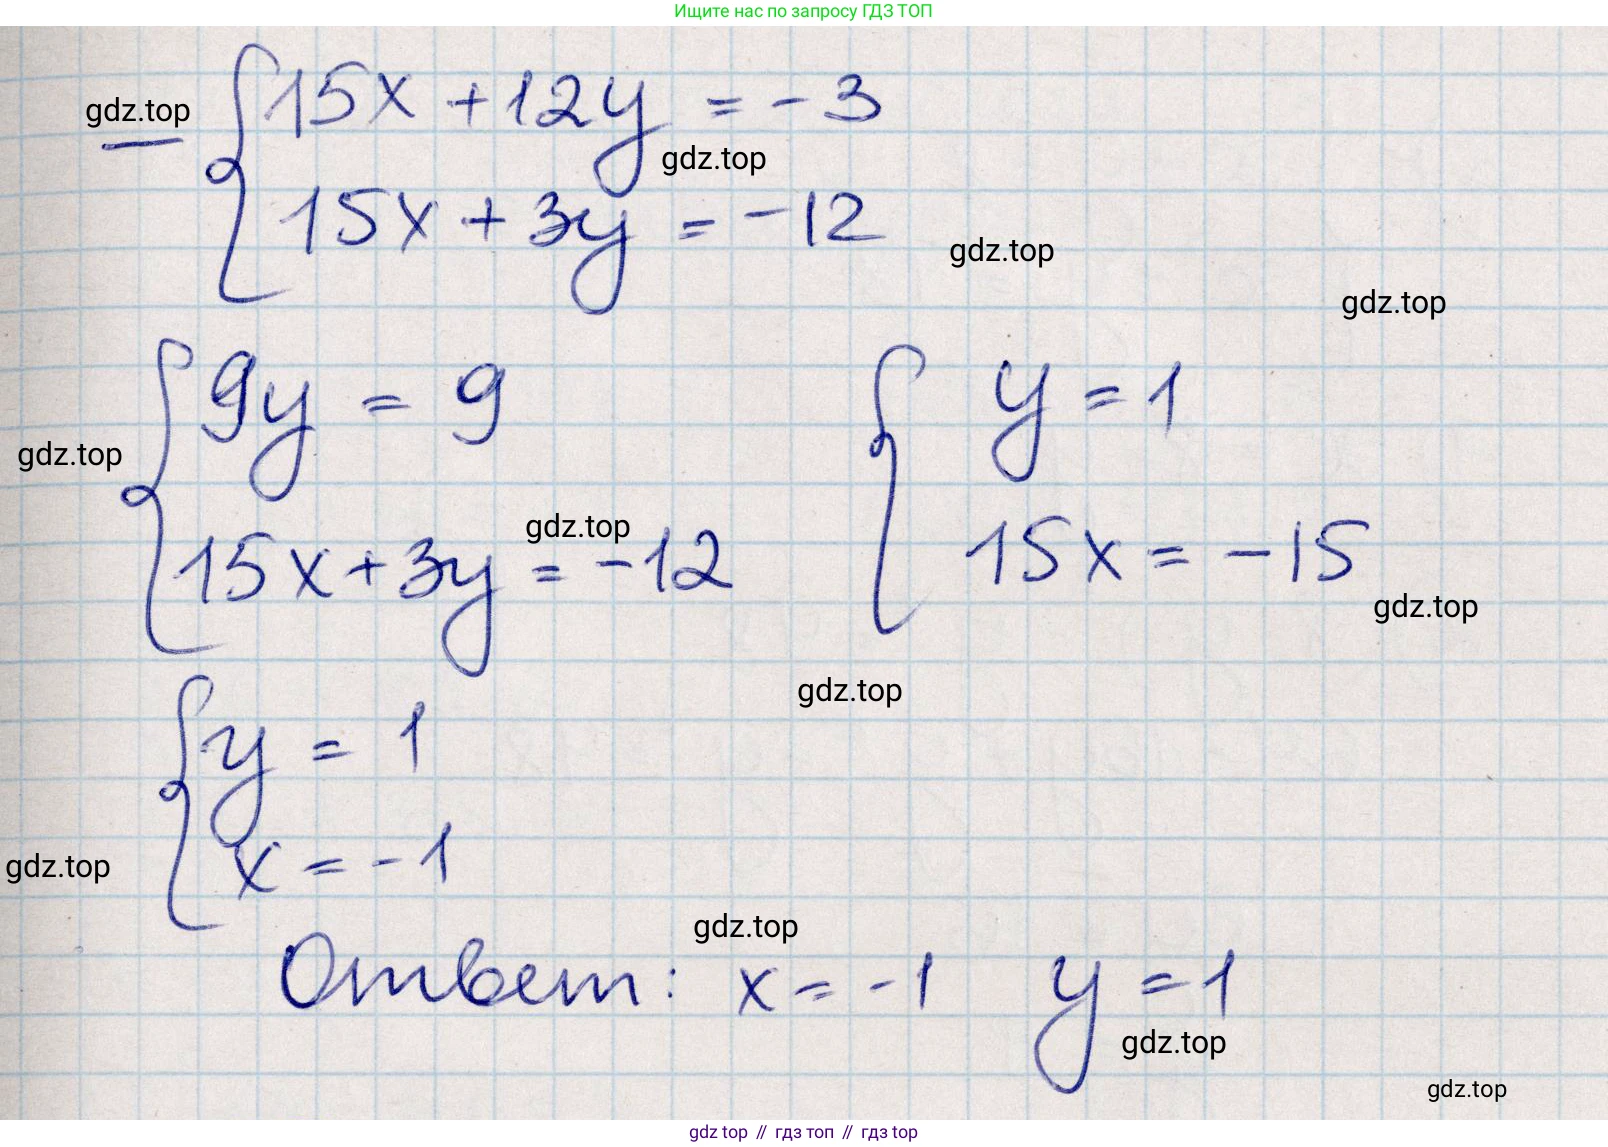 Ищите нас по запросу ГДЗ ТОП
gdz.top
15x + 12y = -3
gdz.top
15x + 3y = -12
gdz.top
gdz.top
9y = 9
y = 1
gdz.top
15x + 3y = -12
gdz.top
15x = -15
gdz.top
gdz.top
y = 1
x = -1
gdz.top
gdz.top
Ответ: x = -1 y = 1
gdz.top
gdz.top
gdz top // гдз топ // гдз top